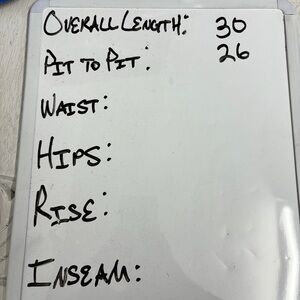 OVERALL LENGTH: 30
PIT TO PIT: 26
WAIST:
HIPS:
RISE:
INSEAM: